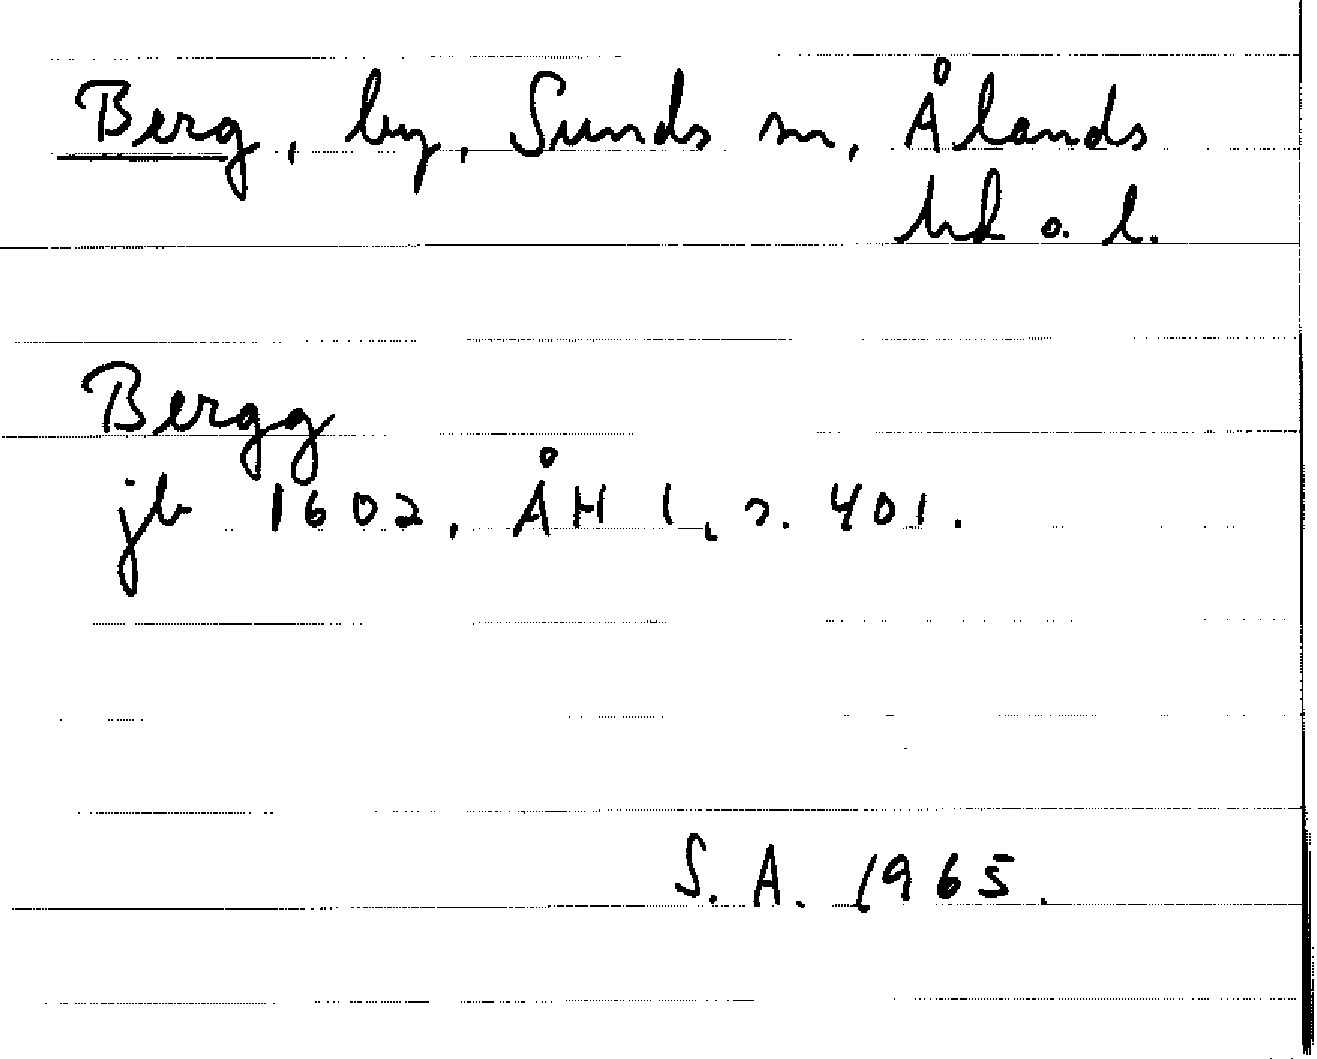 Berg, by, Sunds sn, Ålands
hd o. l.
Bergg
jb 1602, ÅH 1, s. 401.
S. A. 1965.